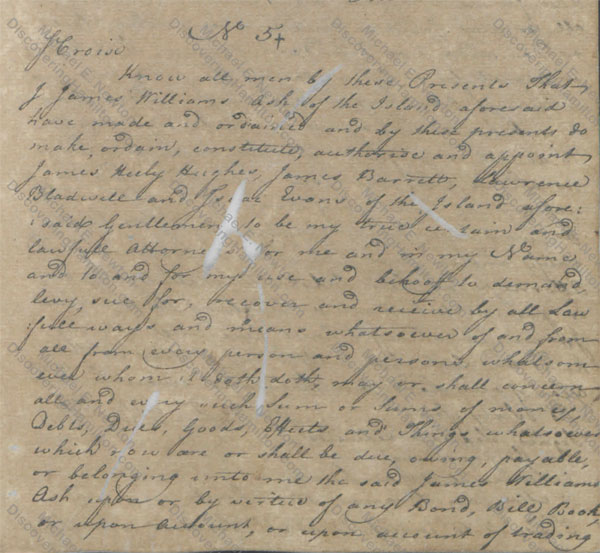 No 54.
St Croix
Know all men by these Presents That
I James Williams Ash of the Island aforesaid
have made and ordained and by these presents do
make, ordain, constitute, authorise and appoint
James Heely Hughes, James Barrett, Lawrence
Bladwell and Isaac Evans of the Island afore:
:said Gentlemen to be my true certain and
lawfull Attorneys for me and in my Name
and to and for my use and behoof to demand,
levy, sue for, recover and receive by all Law
:full ways and means whatsoever of and from
all from every person and persons whatsom
ever whom it doth doth, may or shall concern,
all and every such Sum or Sums of money
Debts, Dues, Goods, Effects and Things whatsoever
which now are or shall be due, owing, payable,
or belonging unto me the said James Williams
Ash upon or by virtue of any Bond, Bill, Book,
or upon Account, or upon account of trading